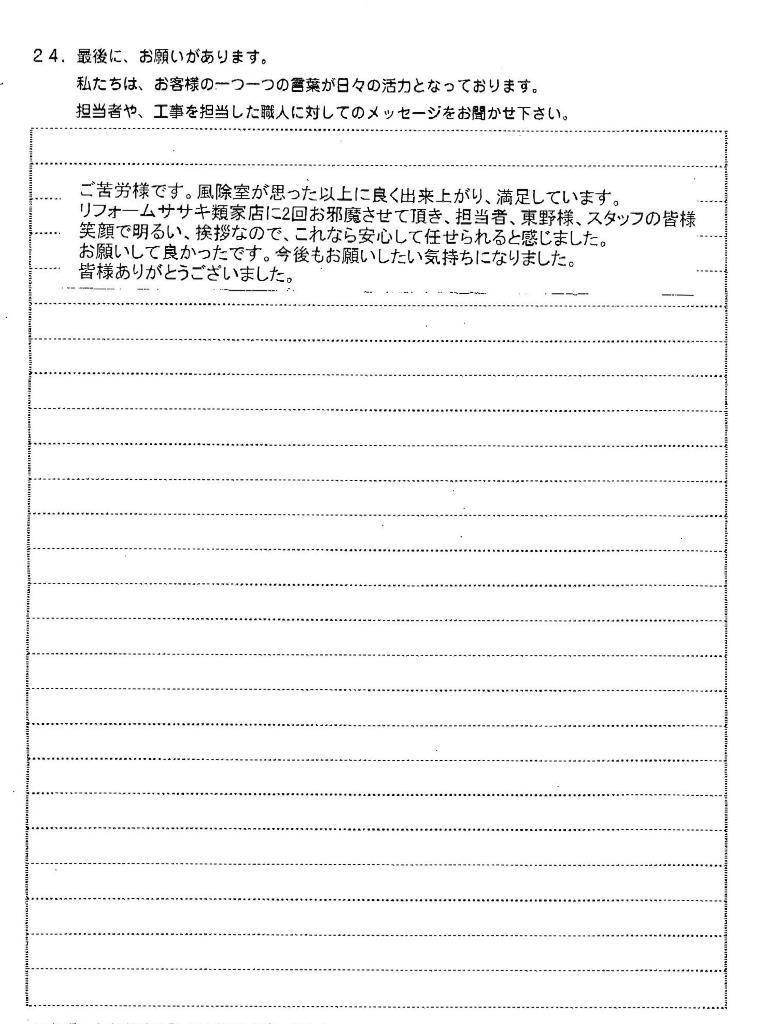 24. 最後に、お願いがあります。
私たちは、お客様の一つ一つの言葉が日々の活力となっております。
担当者や、工事を担当した職人に対してのメッセージをお聞かせ下さい。
ご苦労様です。風除室が思った以上に良く出来上がり、満足しています。
リフォームササキ類家店に2回お邪魔させて頂き、担当者、東野様、スタッフの皆様
笑顔で明るい、挨拶なので、これなら安心して任せられると感じました。
お願いして良かったです。今後もお願いしたい気持ちになりました。
皆様ありがとうございました。